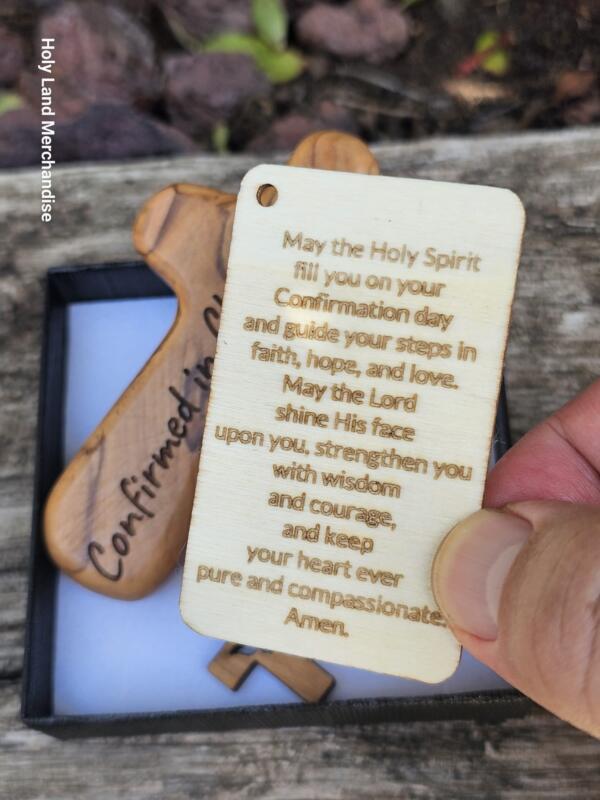 Holy Land Merchandise
May the Holy Spirit
fill you on your
Confirmation day
and guide your steps in
faith, hope, and love.
May the Lord
shine His face
upon you, strengthen you
with wisdom
and courage,
and keep
your heart ever
pure and compassionate.
Amen.
Confirmed in